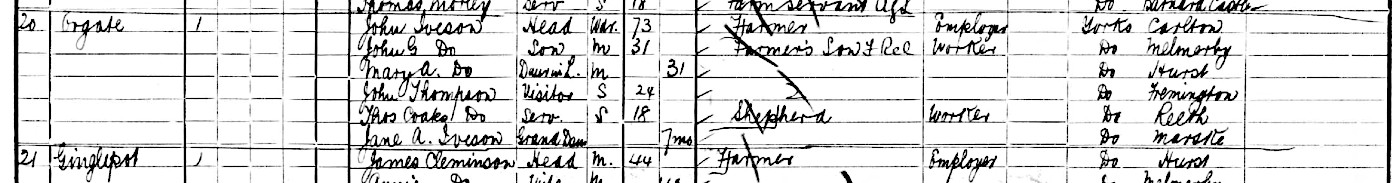 Thomas Morley Serv S 18 Farm Servant Agl Do Barnard Castle
20 Orgate 1 John Iveson Head 73 Farmer Employer Yorks Carlton
John G Do Son M 31 Farmer's Son Worker Do Melmerby
Mary A. Do M 31 Do Hurst
John Thompson Visitor S 24 Do Fremington
Thos Coaks Do Serv. S 18 Shepherd Worker Do Reeth
Jane A. Iveson Grand Daur 7mo Do Marske
21 Ginglepot 1 James Cleminson Head M. 44 Farmer Employer Do Hurst
Do Wife Do Melmerby